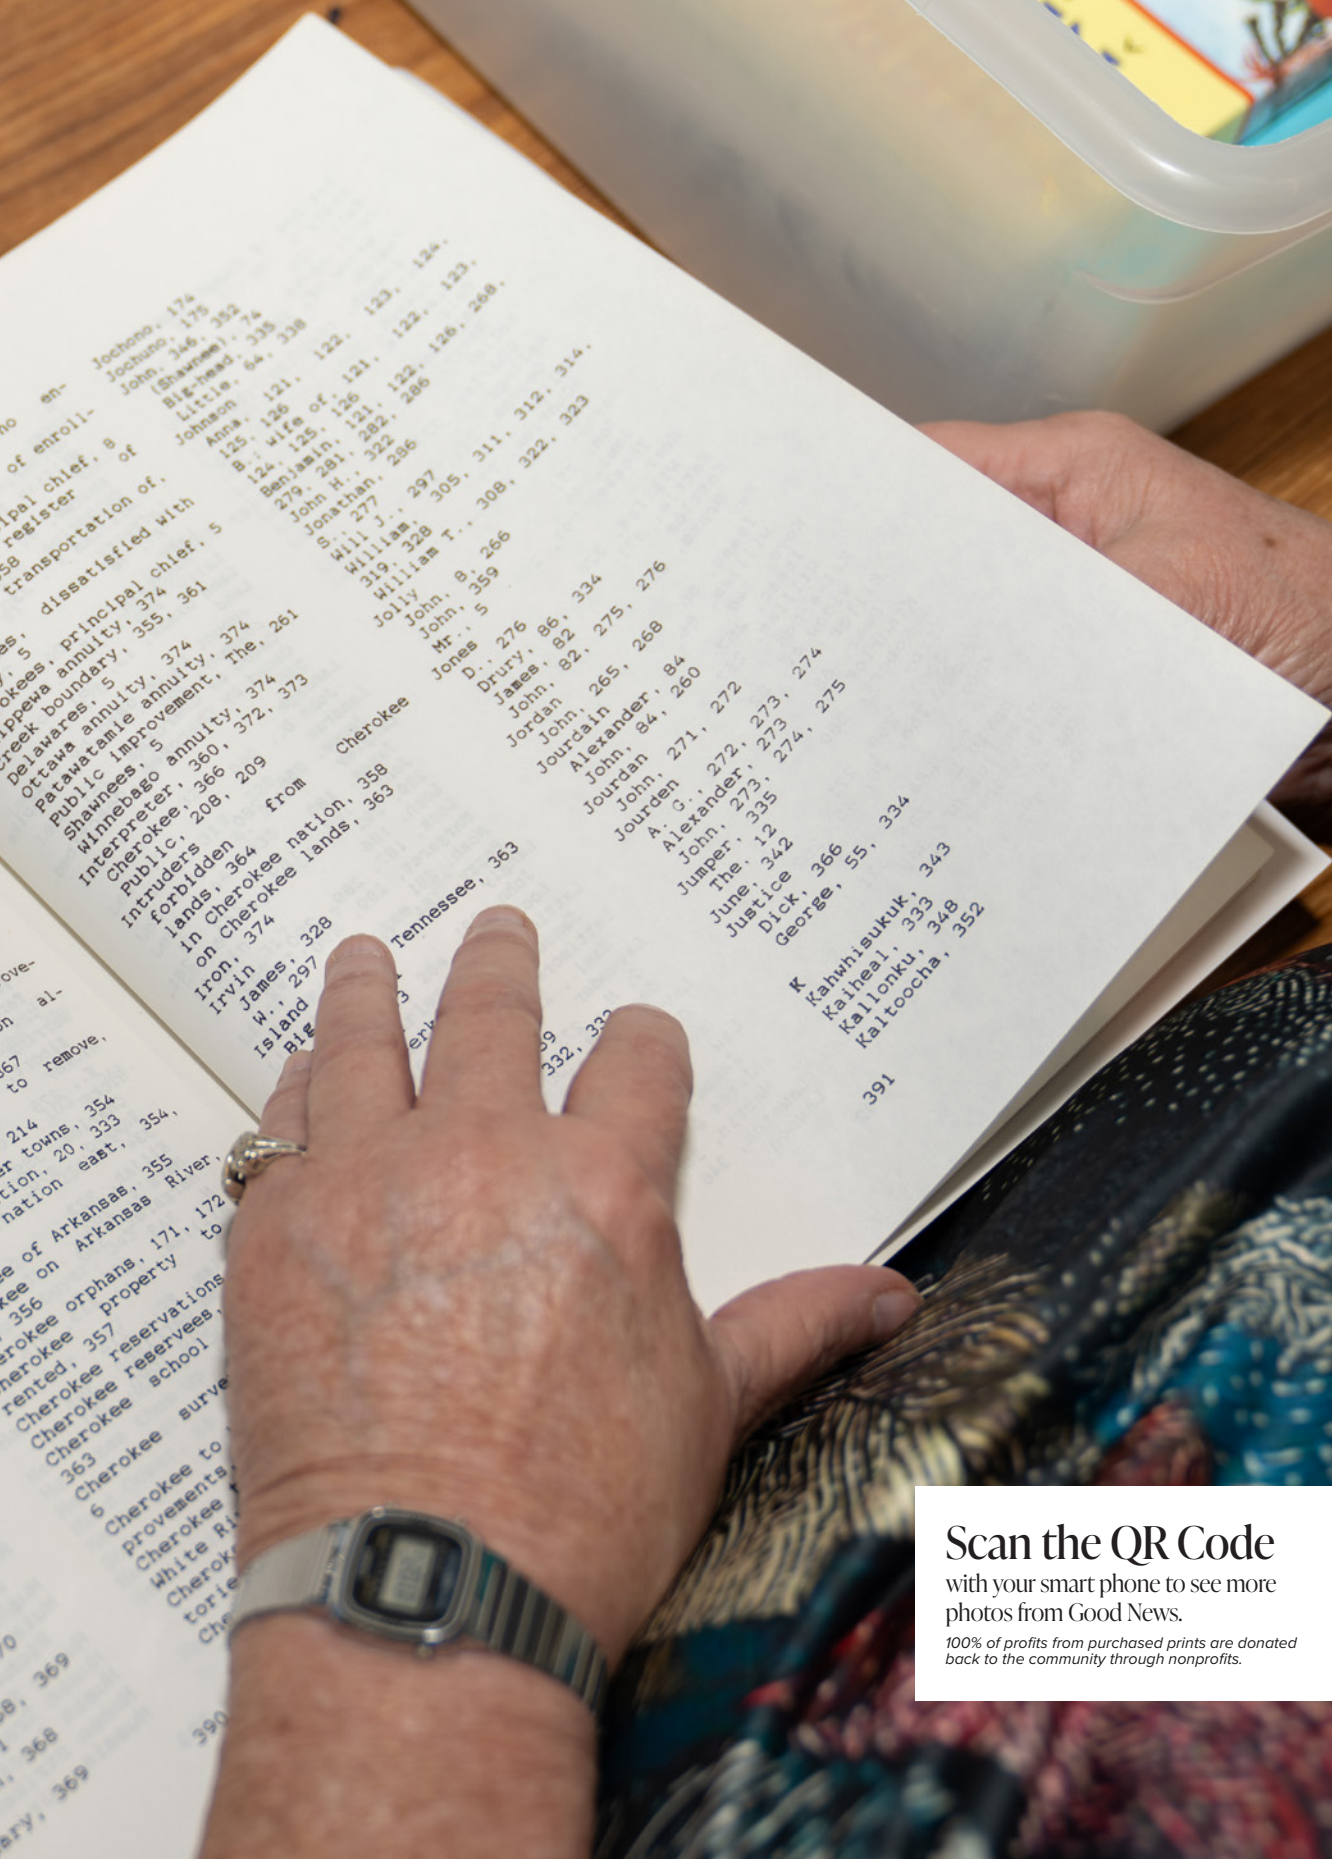 no en-
of enroll-
ipal chief, 8
register of
58
transportation of,
dissatisfied with
es,
, 5
okees, principal chief, 5
ippewa annuity, 374
reek boundary, 355, 361
Delawares, 5
Ottawa annuity, 374
Patawatamie annuity, 374
Public improvement, The, 261
Shawnees, 5
Winnebago annuity, 374
Interpreter, 360, 372, 373
Cherokee, 366
Public, 208, 209
Intruders
forbidden from Cherokee
lands, 364
in Cherokee nation, 358
on Cherokee lands, 363
Iron, 374
Irvin
James, 328
W., 297
Island
Big
Tennessee, 363
3
erk
59
332, 333
Jochono, 174
Jochuno, 175
John, 346, 352
(Shawnee), 74
Big-head, 335
Little, 64, 338
Johnson
Anna, 121, 122, 123, 124,
125, 126
B.; wife of, 121, 122, 123,
124, 125, 126
Benjamin, 121, 122, 126, 268,
279, 281, 282, 286
John H., 322
Jonathan, 286
S., 277
Will J., 297
William, 305, 311, 312, 314,
319, 328
William T., 308, 322, 323
Jolly
John, 8, 266
John, 359
Mr., 5
Jones
D., 276
Drury, 86, 334
James, 82
John, 82, 275, 276
Jordan
John, 265, 268
Jourdain
Alexander, 84
John, 84, 260
Jourdan
John, 271, 272
Jourden
A. G., 272, 273, 274
Alexander, 273
John, 273, 274, 275
Jumper, 335
The, 12
June, 342
Justice
Dick, 366
George, 55, 334
K
Kahwhisukuk, 343
Kaiheal, 333
Kallonku, 348
Kaltoocha, 352
391
ove-
n al-
367
to remove,
214
er towns, 354
tion, 20, 333
nation east, 354,
ee of Arkansas, 355
kee on Arkansas River,
, 356
erokee orphans, 171, 172
herokee property to
rented, 357
Cherokee reservations
Cherokee reservees,
Cherokee school
363
Cherokee surve
6
Cherokee to
provements,
Cherokee
White Ri
Cherok
torie
Che
70
58, 369
, 368
ary, 369
390
Scan the QR Code
with your smart phone to see more
photos from Good News.
100% of profits from purchased prints are donated
back to the community through nonprofits.